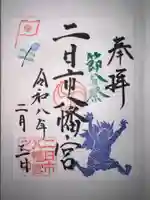 奉拝
節分祭
二日市八幡宮
令和八年
二月三日